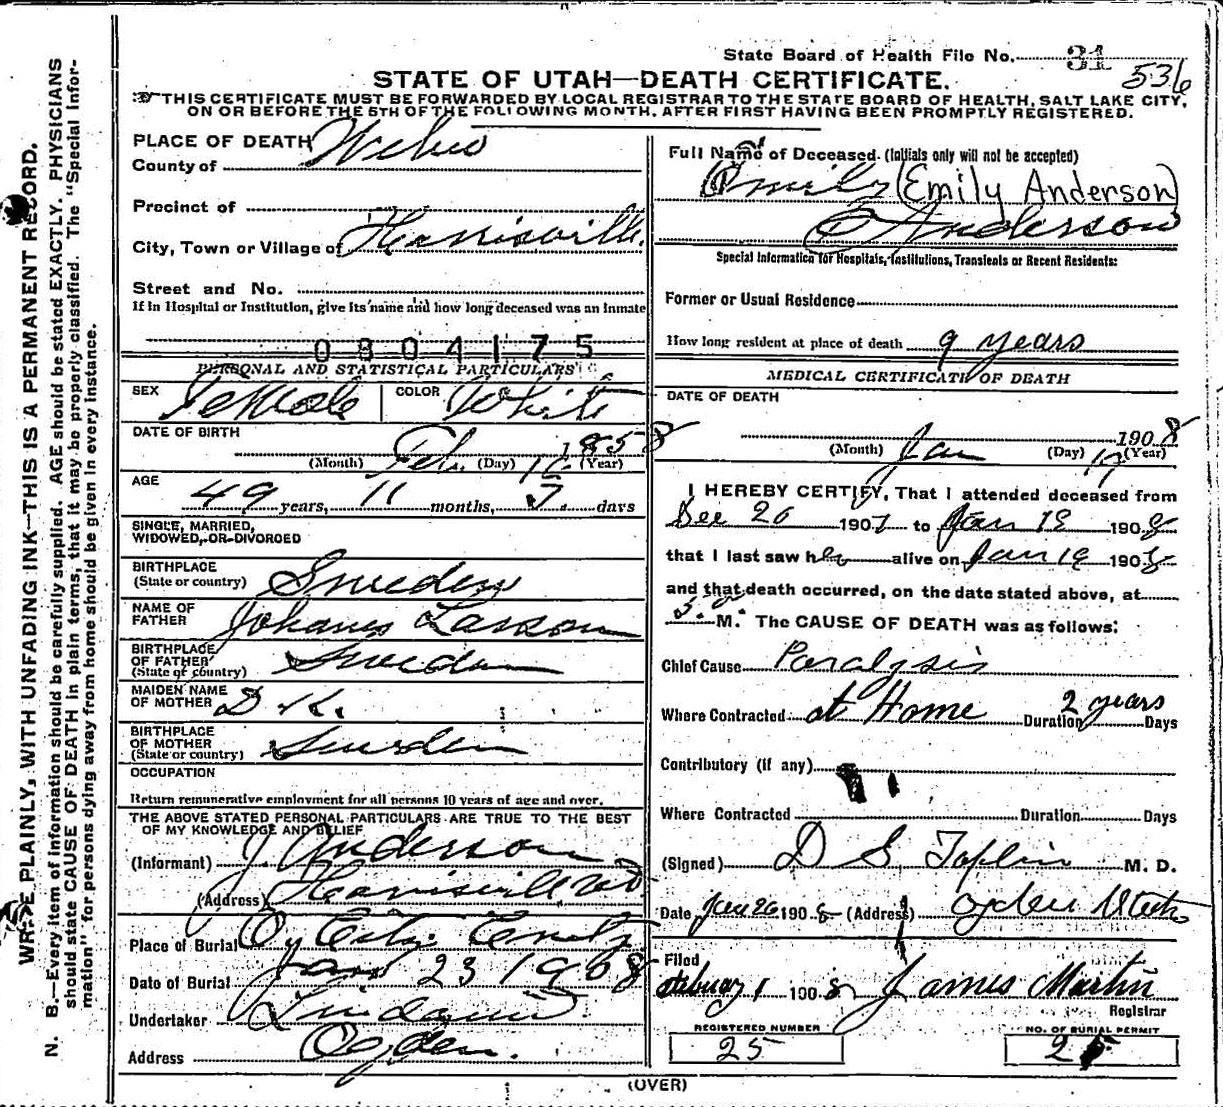 State Board of Health File No. 31
536
STATE OF UTAH—DEATH CERTIFICATE.
THIS CERTIFICATE MUST BE FORWARDED BY LOCAL REGISTRAR TO THE STATE BOARD OF HEALTH, SALT LAKE CITY,
ON OR BEFORE THE 5TH OF THE FOLLOWING MONTH, AFTER FIRST HAVING BEEN PROMPTLY REGISTERED.
WRITE PLAINLY, WITH UNFADING INK—THIS IS A PERMANENT RECORD.
N. B.—Every item of information should be carefully supplied. AGE should be stated EXACTLY. PHYSICIANS
should state CAUSE OF DEATH in plain terms, that it may be properly classified. The "Special Infor-
mation" for persons dying away from home should be given in every instance.
PLACE OF DEATH
County of Weber
Precinct of
City, Town or Village of Harrisville
Street and No.
If in Hospital or Institution, give its name and how long deceased was an inmate
0804175
PERSONAL AND STATISTICAL PARTICULARS
SEX Female COLOR White
DATE OF BIRTH
(Month) Feb. (Day) (Year) 1858
AGE
49 years, 11 months, days
SINGLE, MARRIED,
WIDOWED, OR DIVORCED
BIRTHPLACE
(State or country) Sweden
NAME OF
FATHER Johanes Larson
BIRTHPLACE
OF FATHER
(State or country) Sweden
MAIDEN NAME
OF MOTHER D K.
BIRTHPLACE
OF MOTHER
(State or country) Sweden
OCCUPATION
Return remunerative employment for all persons 10 years of age and over.
THE ABOVE STATED PERSONAL PARTICULARS ARE TRUE TO THE BEST
OF MY KNOWLEDGE AND BELIEF
(Informant) J Anderson
(Address) Harrisville
Place of Burial City
Date of Burial Jan 23 1908
Undertaker Lindquist
Address Ogden.
Full Name of Deceased. (Initials only will not be accepted)
Emily (Emily Anderson)
Anderson
Special Information for Hospitals, Institutions, Transients or Recent Residents:
Former or Usual Residence
How long resident at place of death 9 years
MEDICAL CERTIFICATE OF DEATH
DATE OF DEATH
(Month) Jan (Day) 1908 (Year)
I HEREBY CERTIFY, That I attended deceased from
Dec 20 1907 to Jan 19 1908
that I last saw her alive on Jan 19 1908
and that death occurred, on the date stated above, at
5 M. The CAUSE OF DEATH was as follows:
Chief Cause Paralysis
Where Contracted at Home Duration 2 years Days
Contributory (if any)
Where Contracted Duration Days
(Signed) D S Toplin M. D.
Date Jan 20 1908 (Address) Ogden Utah
Filed
February 1 1908 James Martin
Registrar
REGISTERED NUMBER
25
NO. OF BURIAL PERMIT
25
(OVER)